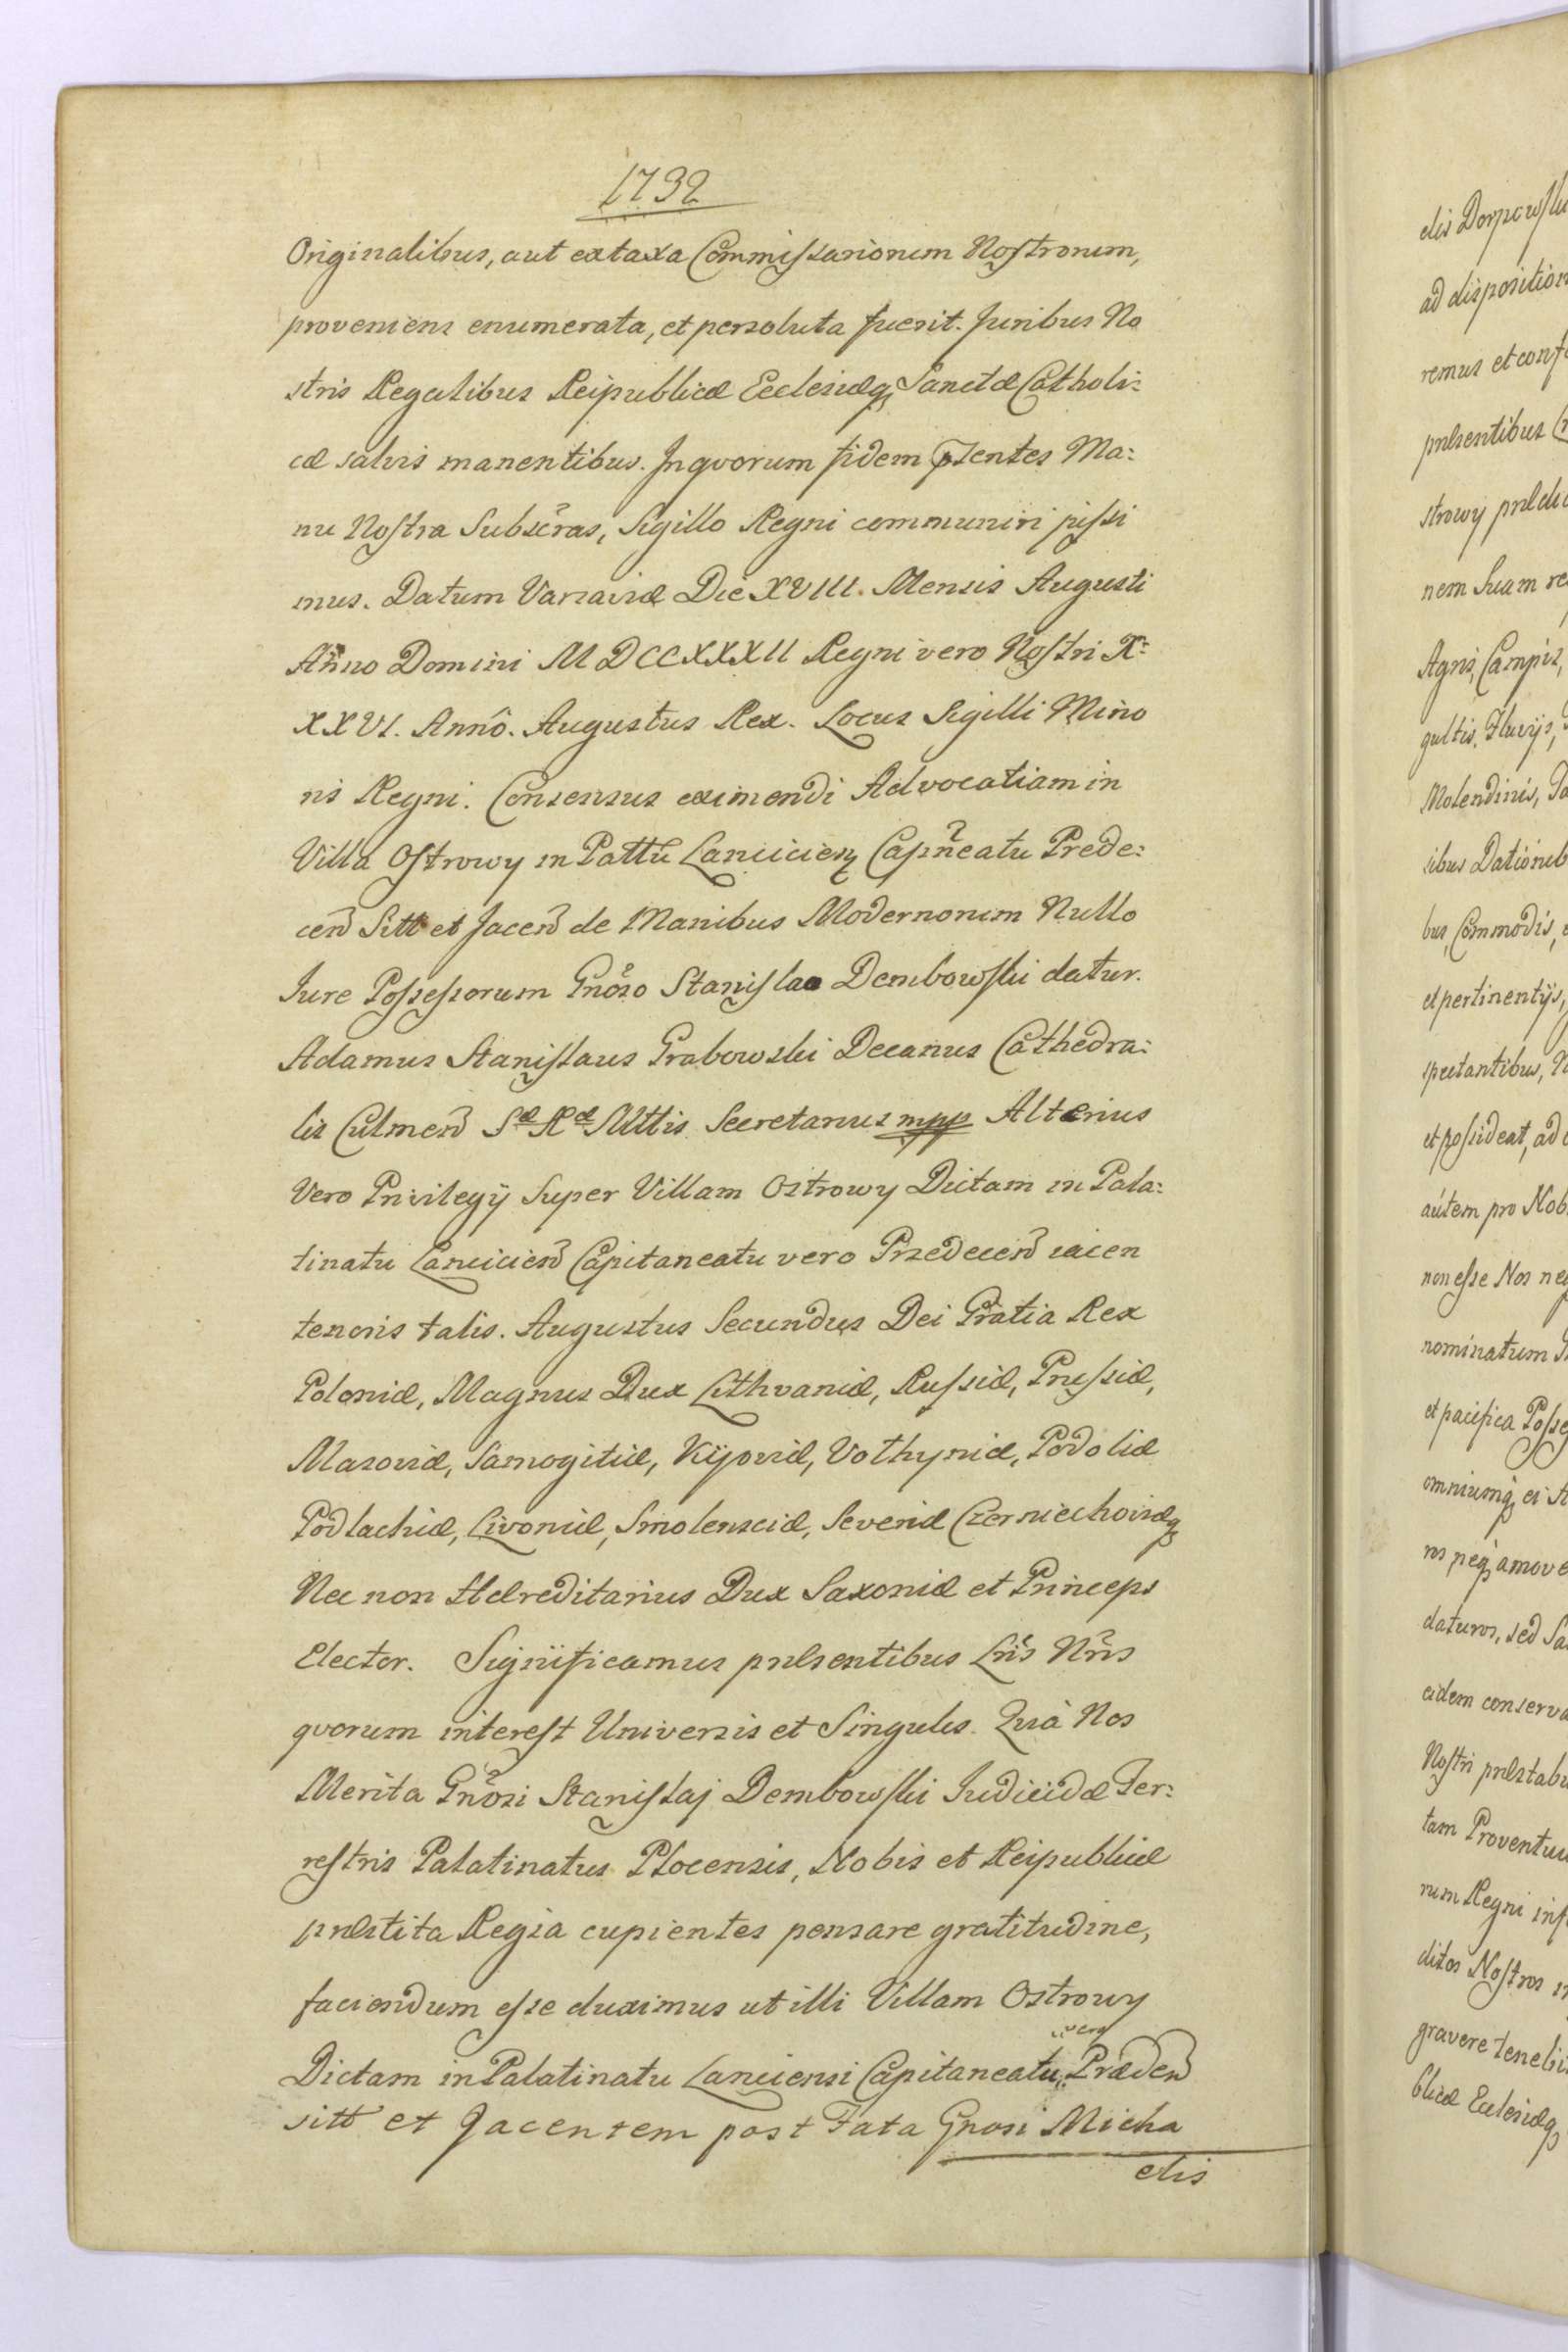 1732
Originalibus, aut ex taxa Commissariorum Nostrorum,
proveniens enumerata, et persoluta fuerit. Juribus No
stris Regalibus Reipublicæ Ecclesiæq, Sanctæ Catholi:
cæ salvis manentibus. Inqvorum fidem pzentes Ma:
nu Nostra Subscras, Sigillo Regni communiri jussi
mus. Datum Varsaviæ Die XVIII. Mensis Augusti
Anno Domini MDCCXXXII Regni vero Nostri X:
XXVI. Annô. Augustus Rex. Locus Sigilli Mino
ris Regni. Consensus eximendi Advocatiam in
Villa Ostrowy in Pattu Lanicien Capneatu Prede:
cen Sitt et Jacen de Manibus Modernorum Nullo
Iure Possessorum Gnoso Stanislao Dembowski datur.
Adamus Stanislaus Grabowski Decanus Cathedra:
lis Culmen Sæ Ræ Mttis Secretarius mpp Alterius
Vero Privilegÿ Super Villam Ostrowy Dictam in Pala:
tinatu Lancicien Capitaneatu vero Przedecen iacen
tenoris talis. Augustus Secundus Dei Gratia Rex
Poloniæ, Magnus Dux Lithvaniæ, Russiæ, Prussiæ,
Masoviæ, Samogitiæ, Kijoviæ, Volhyniæ, Podoliæ
Podlachiæ, Livoniæ, Smolensciæ, Severiæ Czerniechoviæq,
Nec non Hæreditarius Dux Saxoniæ et Princeps
Elector. Significamus præsentibus Lris Nris
qvorum interest Universis et Singulis. Quià Nos
Merita Gnosi Stanislaj Dembowski Iudicidæ Ter:
restris Palatinatus Plocensis, Nobis et Reipublicæ
præstita Regia cupientes pensare gratitudine,
faciendum esse duximus ut illi Villam Ostrowy
Dictam in Palatinatu Lanciensi Capitaneatu vero Præden
sitt et Jacentem post Fata Gnosi Micha
elis
elis Dorpowsk
ad disposition
remus et conf
præsentibus
strowy prædic
nem Suam re
Agris, Campis,
gultis, Fluvijs,
Molendinis,
sibus Dationib
bus, Commodis,
et pertinentijs,
spectantibus,
et possideat, ad
autem pro Nob
non esse Nos ne
nominatum
et pacifica Posse
omniumq ei
ros neq amove
daturos, sed Sa
eidem conserva
Nostri præstabi
tam Proventu
rum Regni inf
ditos Nostros
gravere tenebi
blicæ Eclesiæq